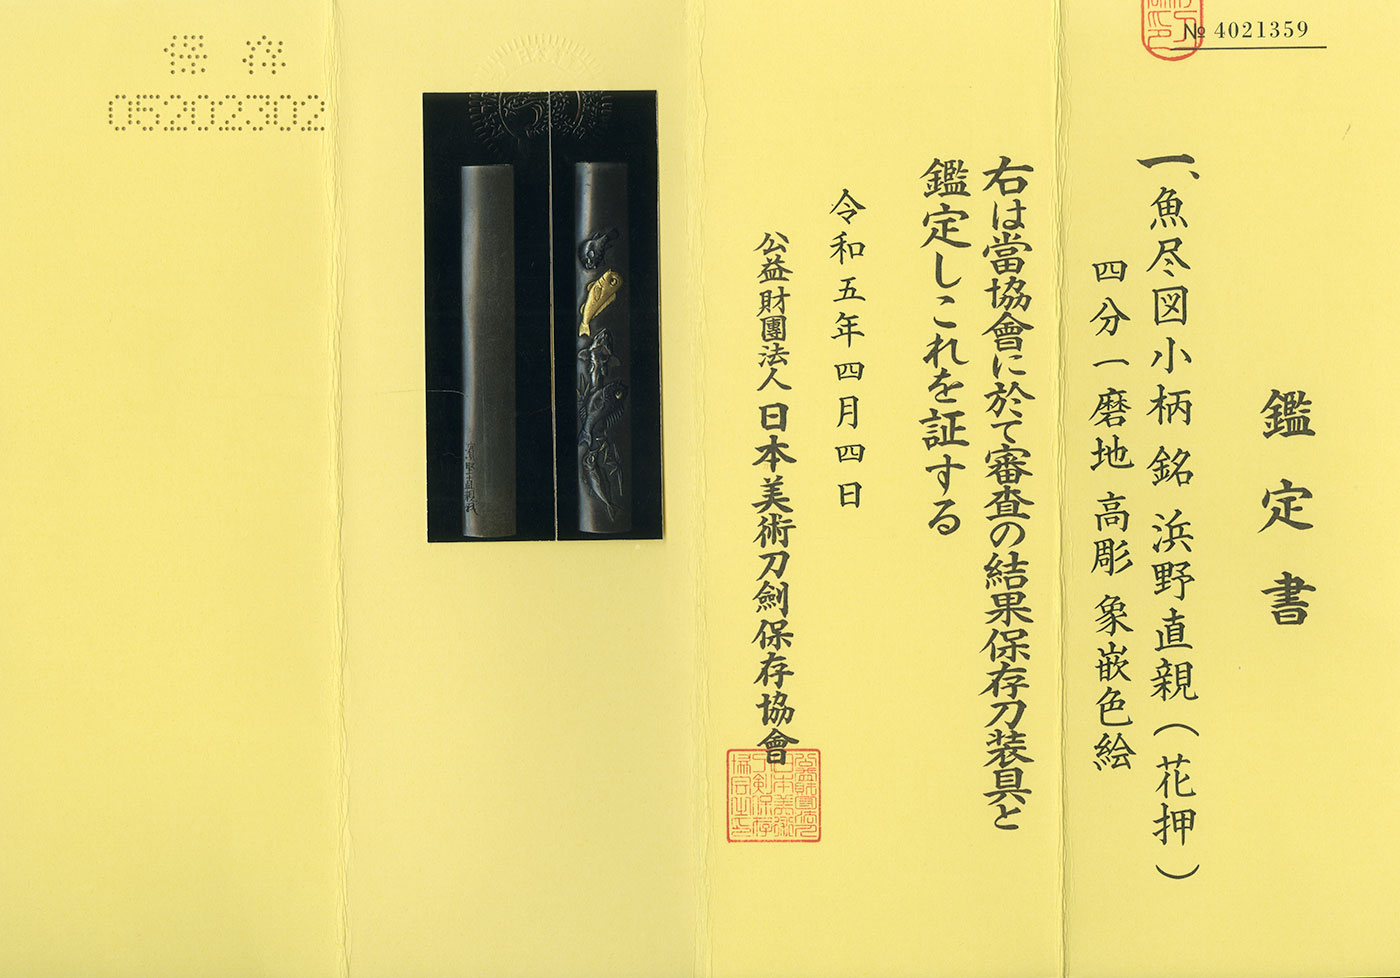 № 4021359
鑑定書
一、魚尽図小柄 銘 浜野直親(花押)
四分一磨地 高彫 象嵌色絵
右は當協會に於て審査の結果保存刀装具と
鑑定しこれを証する
令和五年四月四日
公益財團法人 日本美術刀劍保存協會
保存
05202302